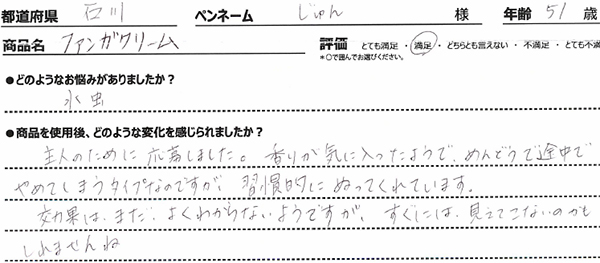 都道府県 石川 ペンネーム じゅん 様 年齢 51 歳
商品名 ファンガクリーム 評価 とても満足・満足・どちらとも言えない・不満足・とても不満
*○で囲んでお選びください。
●どのようなお悩みがありましたか？
水虫
●商品を使用後、どのような変化を感じられましたか？
主人のために応募しました。香りが気に入ったようで、めんどうで途中で
やめてしまうタイプなのですが、習慣的にぬってくれています。
効果は、まだ、よくわからないようですが、すぐには、見えてこないのかも
しれませんね